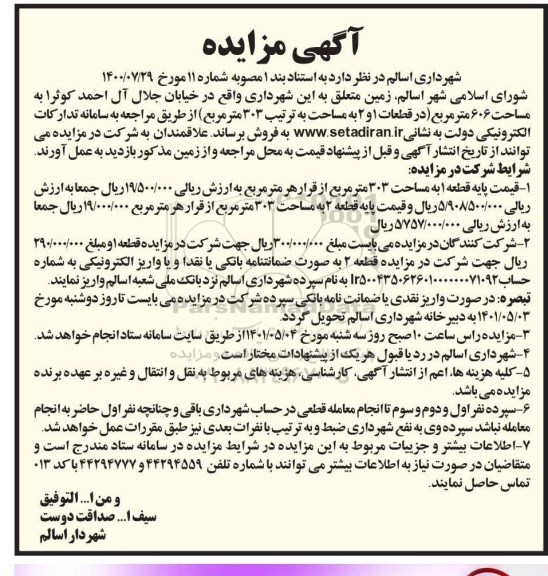 آگهی مزایده
شهرداری اسالم در نظر دارد به استناد بند ۱ مصوبه شماره ۱۱ مورخ ۱۴۰۰/۰۷/۲۹
شورای اسلامی شهر اسالم، زمین متعلق به این شهرداری واقع در خیابان جلال آل احمد کوثر۱ به
مساحت ۶۰۶ مترمربع (در قطعات ۱ و ۲ به مساحت به ترتیب ۳۰۳ مترمربع) از طریق مراجعه به سامانه تدارکات
الکترونیکی دولت به نشانی www.setadiran.ir به فروش برساند. علاقمندان به شرکت در مزایده می
توانند از تاریخ انتشار آگهی و قبل از پیشنهاد قیمت به محل مراجعه و از زمین مذکور بازدید به عمل آورند.
شرایط شرکت در مزایده:
۱- قیمت پایه قطعه ۱ به مساحت ۳۰۳ مترمربع از قرار هر مترمربع به ارزش ریالی ۱۹/۵۰۰/۰۰۰ ریال جمعا به ارزش
ریالی ۵/۹۰۸/۵۰۰/۰۰۰ ریال و قیمت پایه قطعه ۲ به مساحت ۳۰۳ مترمربع از قرار هر مترمربع ۱۹/۰۰۰/۰۰۰ ریال جمعا
به ارزش ریالی ۵/۷۵۷/۰۰۰/۰۰۰ ریال
۲- شرکت کنندگان در مزایده می بایست مبلغ ۳۰۰/۰۰۰/۰۰۰ ریال جهت شرکت در مزایده قطعه ۱ و مبلغ ۲۹۰/۰۰۰/۰۰۰
ریال جهت شرکت در مزایده قطعه ۲ به صورت ضمانتنامه بانکی یا نقدا و یا واریز الکترونیکی به شماره
حساب Ir۵۰۰۴۳۵۰۶۲۶۰۱۰۰۰۰۰۰۷۱۰۹۲ به نام سپرده شهرداری اسالم نزد بانک ملی شعبه اسالم واریز نمایند.
تبصره: در صورت واریز نقدی یا ضمانت نامه بانکی سپرده شرکت در مزایده می بایست تا روز دوشنبه مورخ
۱۴۰۱/۰۵/۰۳ به دبیرخانه شهرداری اسالم تحویل گردد.
۳- مزایده راس ساعت ۱۰ صبح روز سه شنبه مورخ ۱۴۰۱/۰۵/۰۴ از طریق سایت سامانه ستاد انجام خواهد شد.
۴- شهرداری اسالم در رد یا قبول هر یک از پیشنهادات مختار است.
۵- کلیه هزینه ها، اعم از انتشار آگهی، کارشناسی، هزینه های مربوط به نقل و انتقال و غیره بر عهده برنده
مزایده می باشد.
۶- سپرده نفر اول و دوم و سوم تا انجام معامله قطعی در حساب شهرداری باقی و چنانچه نفر اول حاضر به انجام
معامله نباشد سپرده وی به نفع شهرداری ضبط و به ترتیب با نفرات بعدی نیز طبق مقررات عمل خواهد شد.
۷- اطلاعات بیشتر و جزییات مربوط به این مزایده در شرایط مزایده در سامانه ستاد مندرج است و
متقاضیان در صورت نیاز به اطلاعات بیشتر می توانند با شماره تلفن ۴۴۲۹۴۵۵۹ و ۴۴۲۹۴۷۷۷ با کد ۰۱۳
تماس حاصل نمایند.
و من ا... التوفیق
سیف ا... صداقت دوست
شهردار اسالم